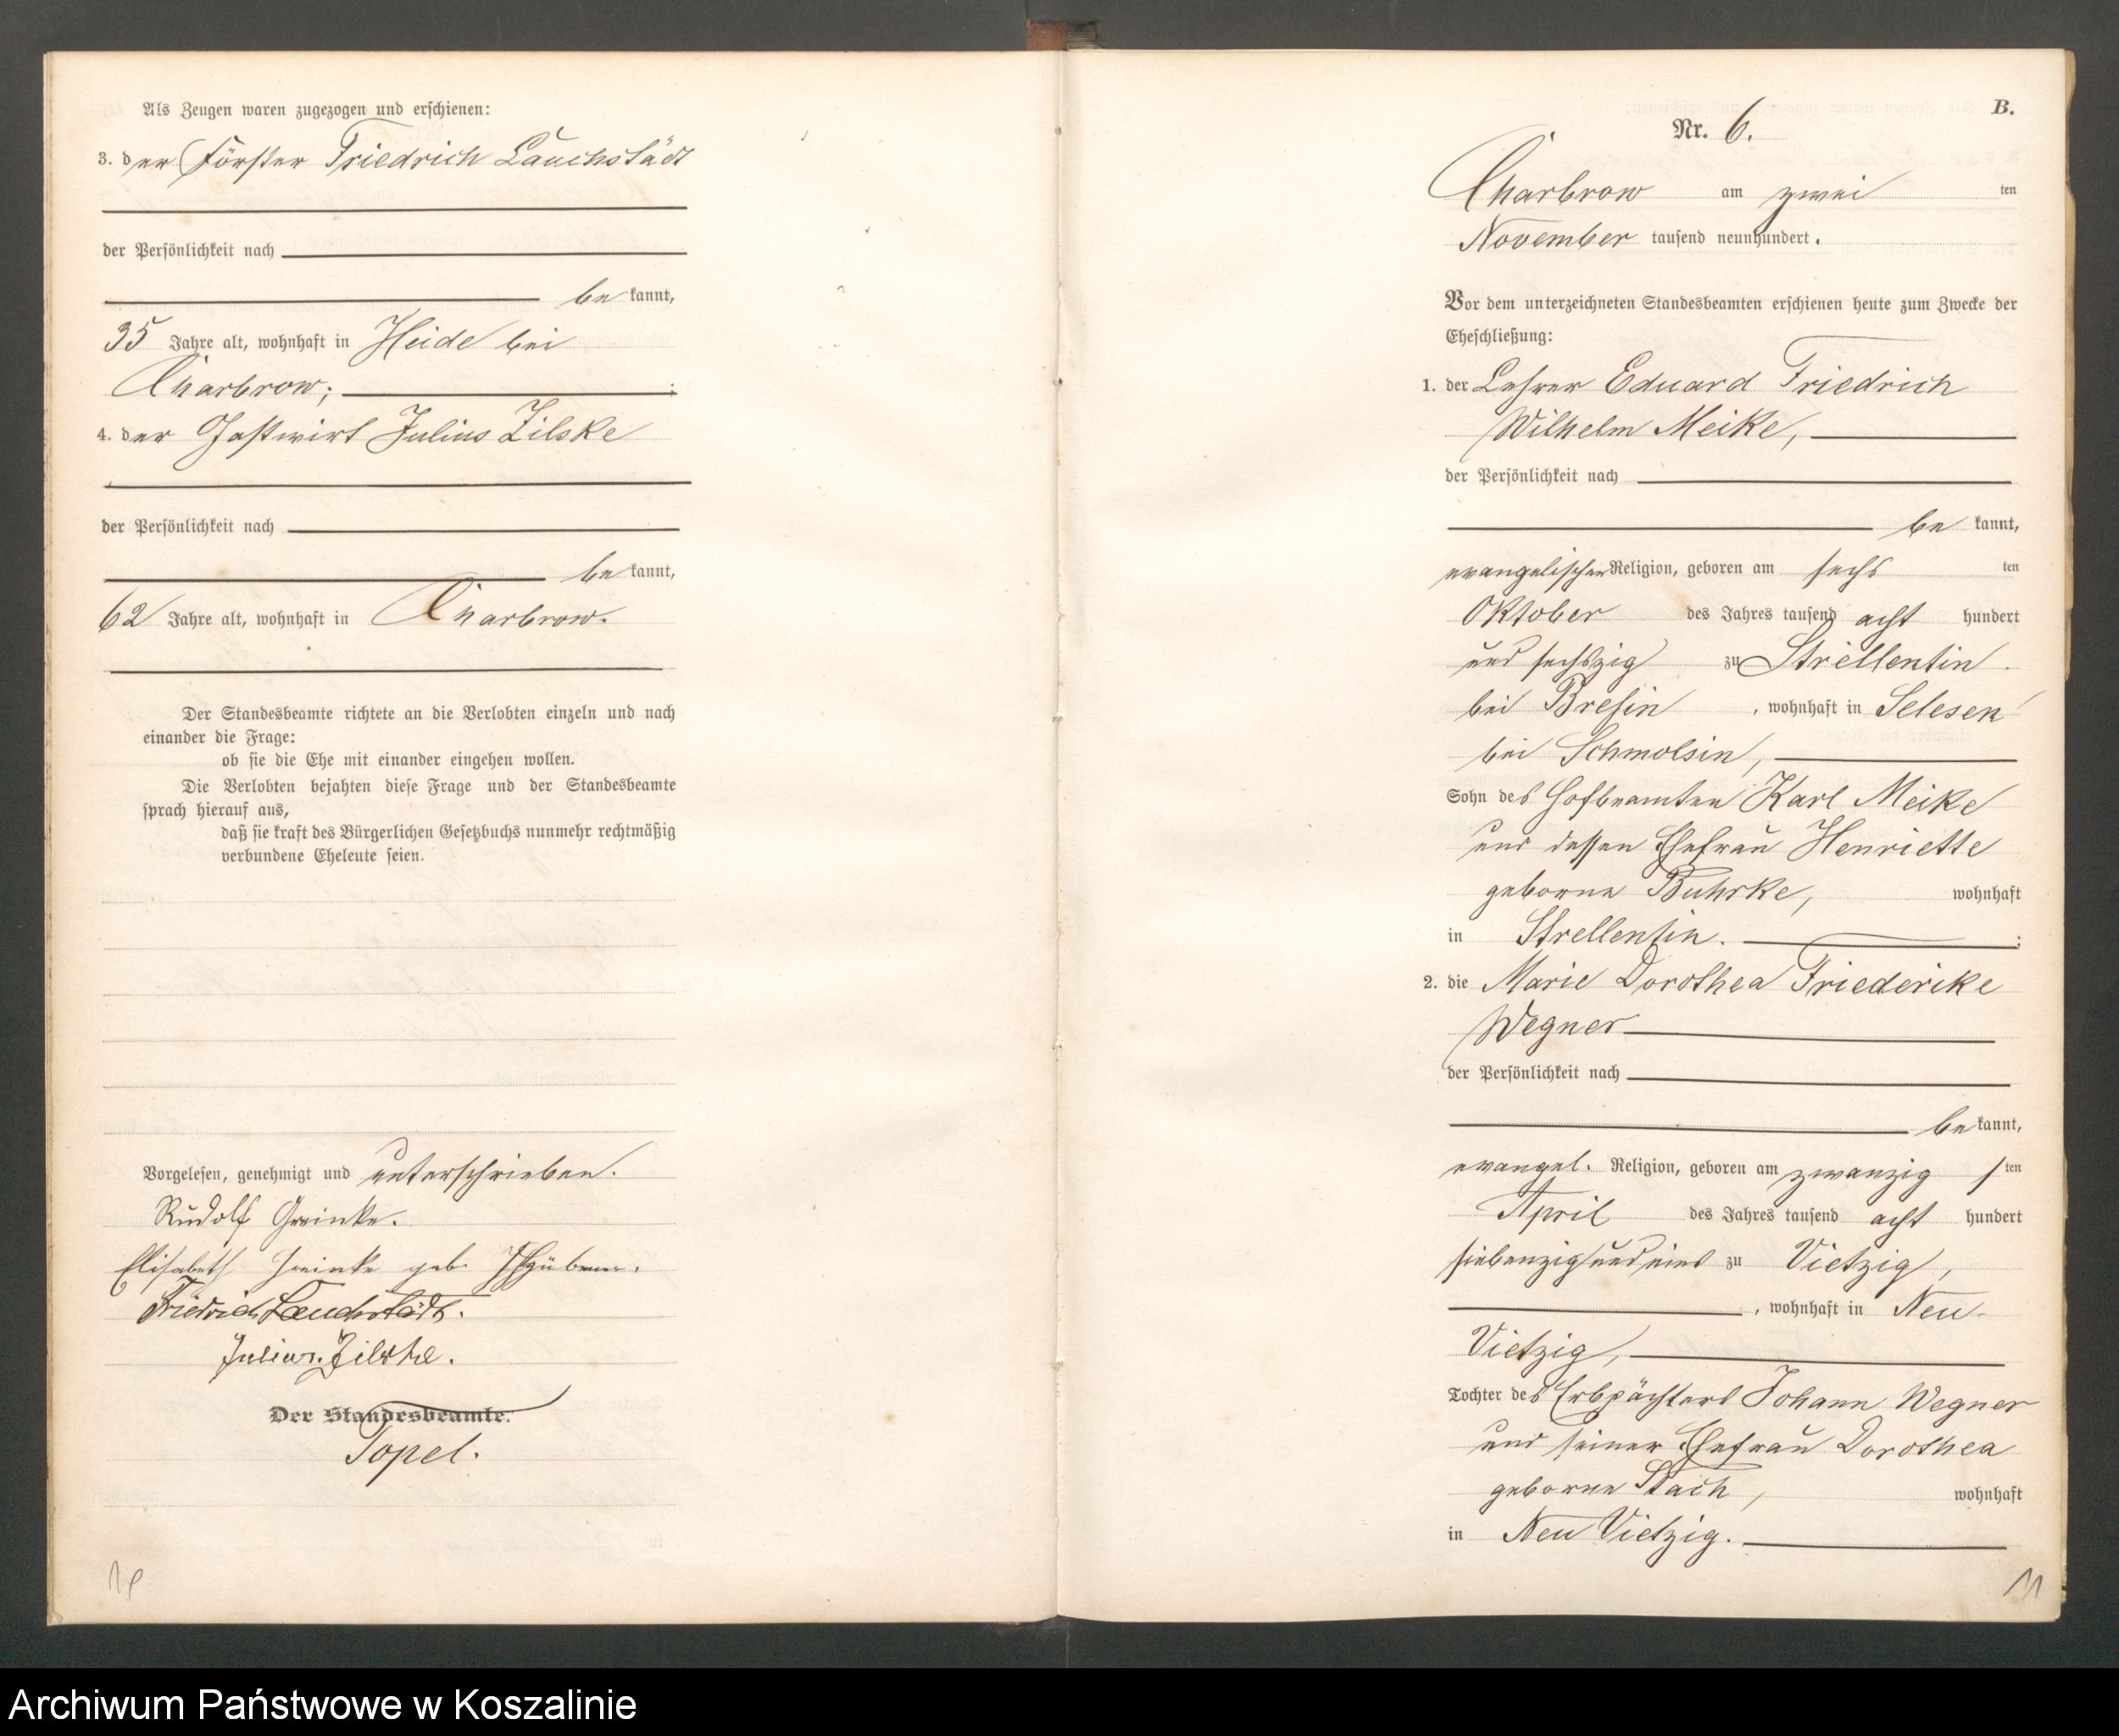 Als Zeugen waren zugezogen und erschienen:
3. der Förster Friedrich Lauchstädt
der Persönlichkeit nach
be kannt,
35 Jahre alt, wohnhaft in Heide bei
Charbrow; ;
4. der Gastwirt Julius Zilske
der Persönlichkeit nach
be kannt,
62 Jahre alt, wohnhaft in Charbrow.
Der Standesbeamte richtete an die Verlobten einzeln und nach
einander die Frage:
ob sie die Ehe mit einander eingehen wollen.
Die Verlobten bejahten diese Frage und der Standesbeamte
sprach hierauf aus,
daß sie kraft des Bürgerlichen Gesetzbuchs nunmehr rechtmäßig
verbundene Eheleute seien.
Vorgelesen, genehmigt und unterschrieben.
Rudolf Greinke.
Elisabeth Greinke geb.
Friedrich Lauchstädt.
Julius Zilske.
Der Standesbeamte.
Topel.
B.
Nr. 6.
Charbrow am zwei ten
November tausend neunhundert.
Vor dem unterzeichneten Standesbeamten erschienen heute zum Zwecke der
Eheschließung:
1. der Lehrer Eduard Friedrich
Wilhelm Meike,
der Persönlichkeit nach
be kannt,
evangelischer Religion, geboren am sechs ten
Oktober des Jahres tausend acht hundert
und sechszig zu Strellentin
bei Bresin , wohnhaft in Selesen
bei Schmolsin,
Sohn des Hofbeamten Karl Meike
und dessen Ehefrau Henriette
geborne Buhrke, wohnhaft
in Strellentin. ;
2. die Marie Dorothea Friederike
Wegner
der Persönlichkeit nach
be kannt,
evangel. Religion, geboren am zwanzig s ten
April des Jahres tausend acht hundert
siebenzig und eins zu Vietzig,
, wohnhaft in Neu-
Vietzig,
Tochter des Erbpächters Johann Wegner
und seiner Ehefrau Dorothea
geborne Stach, wohnhaft
in Neu Vietzig.
11
Archiwum Państwowe w Koszalinie